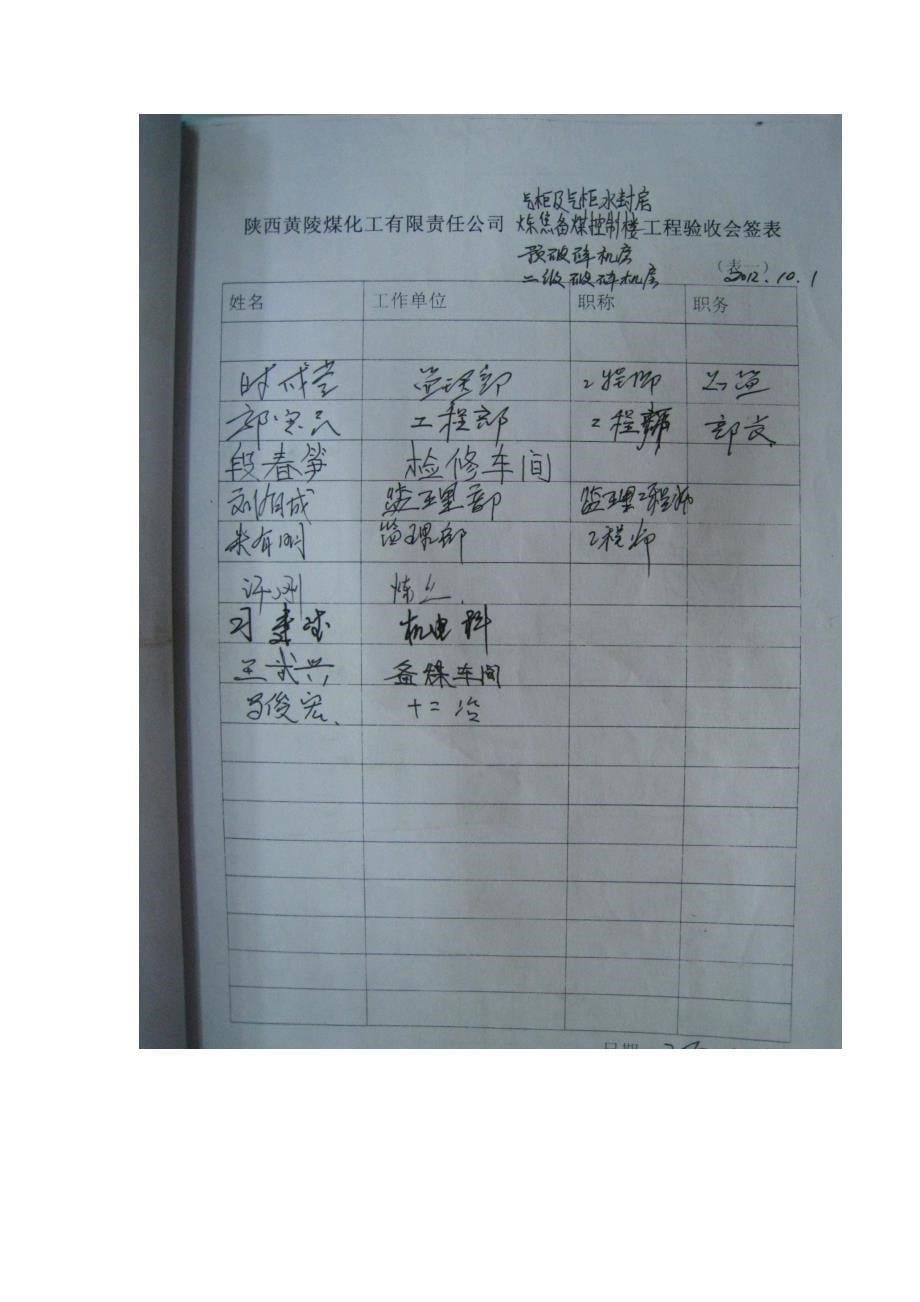 气柜及气柜水封房
陕西黄陵煤化工有限责任公司 炼焦备煤控制楼 工程验收会签表
预破碎机房
(表一)
二级破碎机房 2012.10.1
姓名 工作单位 职称 职务
时成 监理部 工程师 总监
郭 工程部 工程师 部长
段春笋 检修车间
刘 成 监理部 监理工程师
朱有明 监理部 工程师
许刚 炼
刁 机电科
王武兴 备煤车间
马俊宏 十二冶
日期